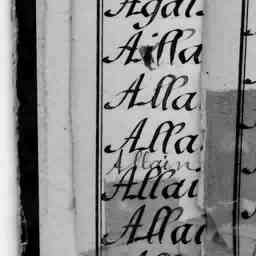 Agal
Ailla
Alla
Alla
Allain
Allai
Allai